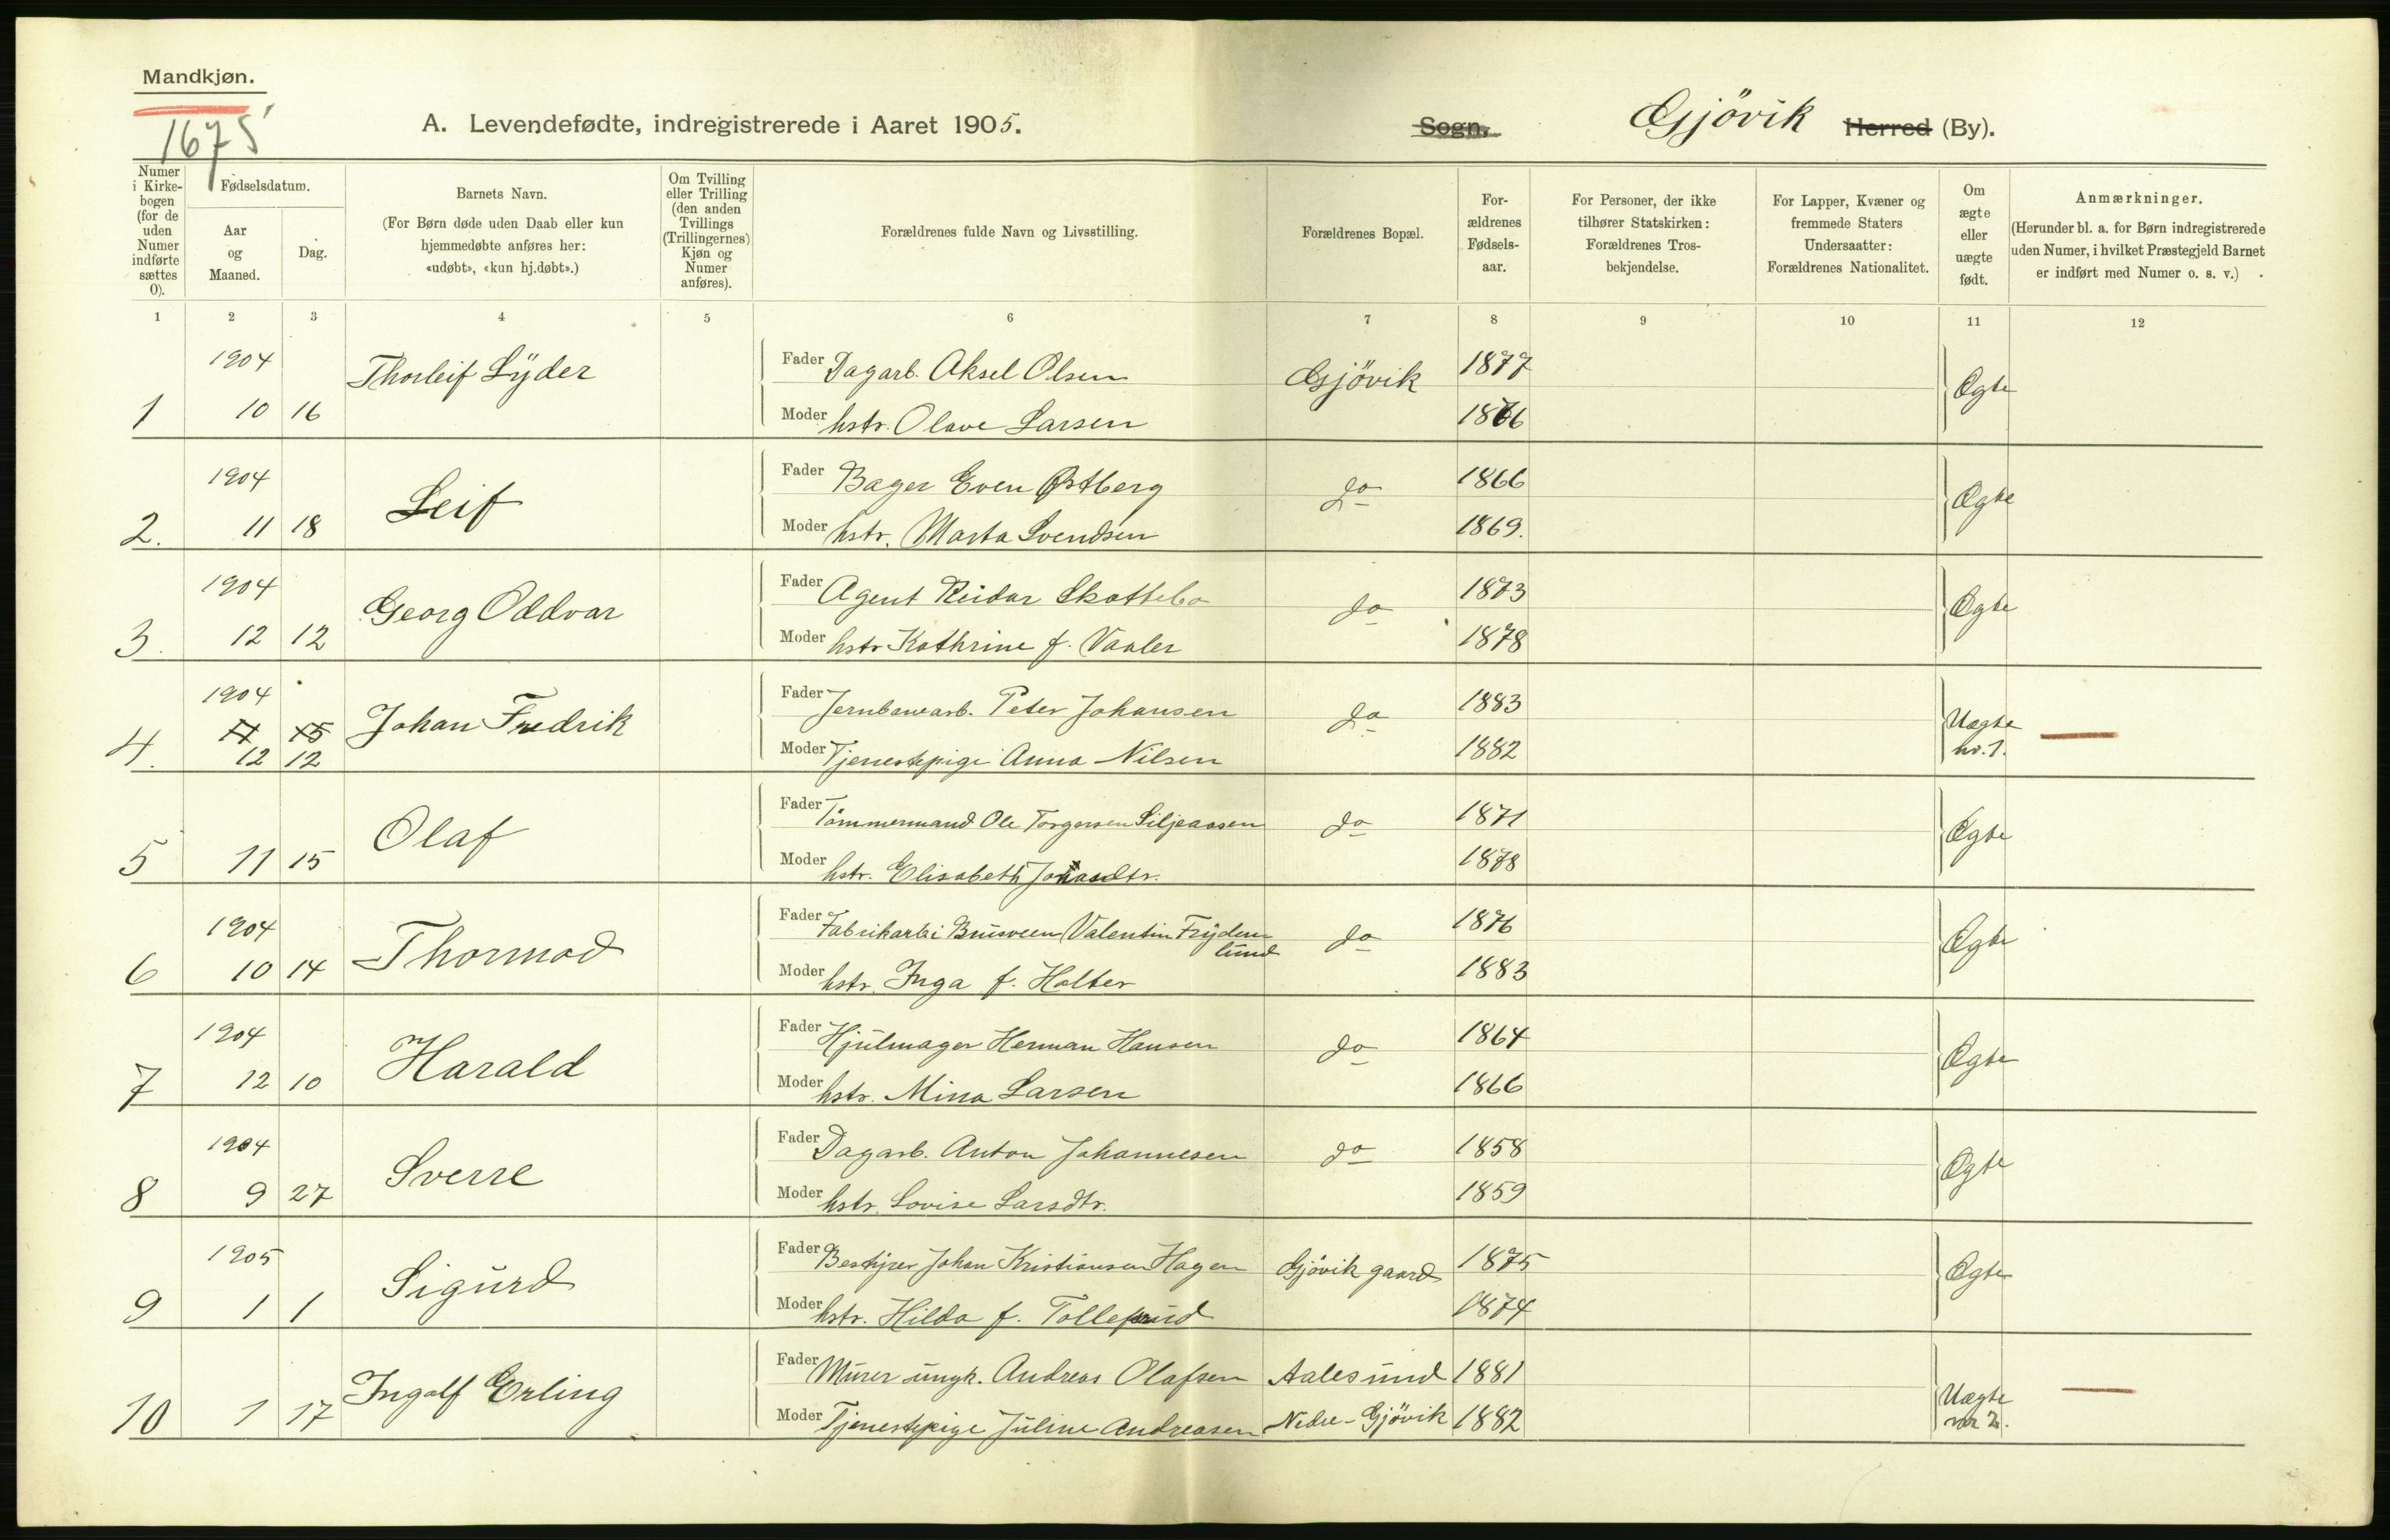 Mandkjøn.
1675
A. Levendefødte, indregistrerede i Aaret 1905.
Sogn. Gjövik Herred (By).
Numer i Kirkebogen (for de uden Numer indførte sættes 0).
Fødselsdatum.
Aar og Maaned.
Dag.
Barnets Navn.
(For Børn døde uden Daab eller kun hjemmedøbte anføres her: «udøbt», «kun hj.døbt».)
Om Tvilling eller Trilling (den anden Tvillings (Trillingernes) Kjøn og Numer anføres).
Forældrenes fulde Navn og Livsstilling.
Forældrenes Bopæl.
Forældrenes Fødselsaar.
For Personer, der ikke tilhører Statskirken: Forældrenes Trosbekjendelse.
For Lapper, Kvæner og fremmede Staters Undersaatter: Forældrenes Nationalitet.
Om ægte eller uægte født.
Anmærkninger.
(Herunder bl. a. for Børn indregistrerede uden Numer, i hvilket Præstegjeld Barnet er indført med Numer o. s. v.)
1 2 3 4 5 6 7 8 9 10 11 12
1904 Thorleif Lÿder Fader Dagarb. Aksel Olsen Gjövik 1877 Ægte
1 10 16 Moder hstr. Olave Larsen 1876
1904 Leif Fader Bager Even Østberg do 1866 Ægte
2. 11 18 Moder hstr. Marta Svendsen 1869.
1904 Georg Oddvar Fader Agent Reidar Skottebo do 1873 Ægte
3. 12 12 Moder hstr Kathrine f. Vaaler 1878
1904 Johan Fredrik Fader Jernbanearb. Peter Johansen do 1883 Uægte nr. 1.
11 15
4. 12 12 Moder Tjenestepige Anna Nilsen 1882
Olaf Fader Tömmermand Ole Torgersen Siljeaasen do 1871 Ægte
5 11 15 Moder hstr. Elisabeth 1878
1904 Thormod Fader Fabrikarbi Brusveen Valentin Frÿdenlund do 1876 Ægte
6 10 14 Moder hstr. Inga f. Holter 1883
1904 Harald Fader Hjulmager Herman Hansen do 1864 Ægte
7 12 10 Moder hstr. Mina Larsen 1866
1904 Sverre Fader Dagarb. Anton Johannesen do 1858 Ægte
8 9 27 Moder hstr. Lovise Larsdtr. 1859
1905 Sigurd Fader Bestyrer Johan Kristiansen Hagen Gjövik gaard 1875 Ægte
9 1 1 Moder hstr. Hilda f. Tollefsrud 1874
Ingolf Erling Fader Murer ungk. Andreas Olafsen Aalesund 1881 Uægte nr 2.
10 1 17 Moder Tjenestepige Juline Andreasen Nedre-Gjövik 1882